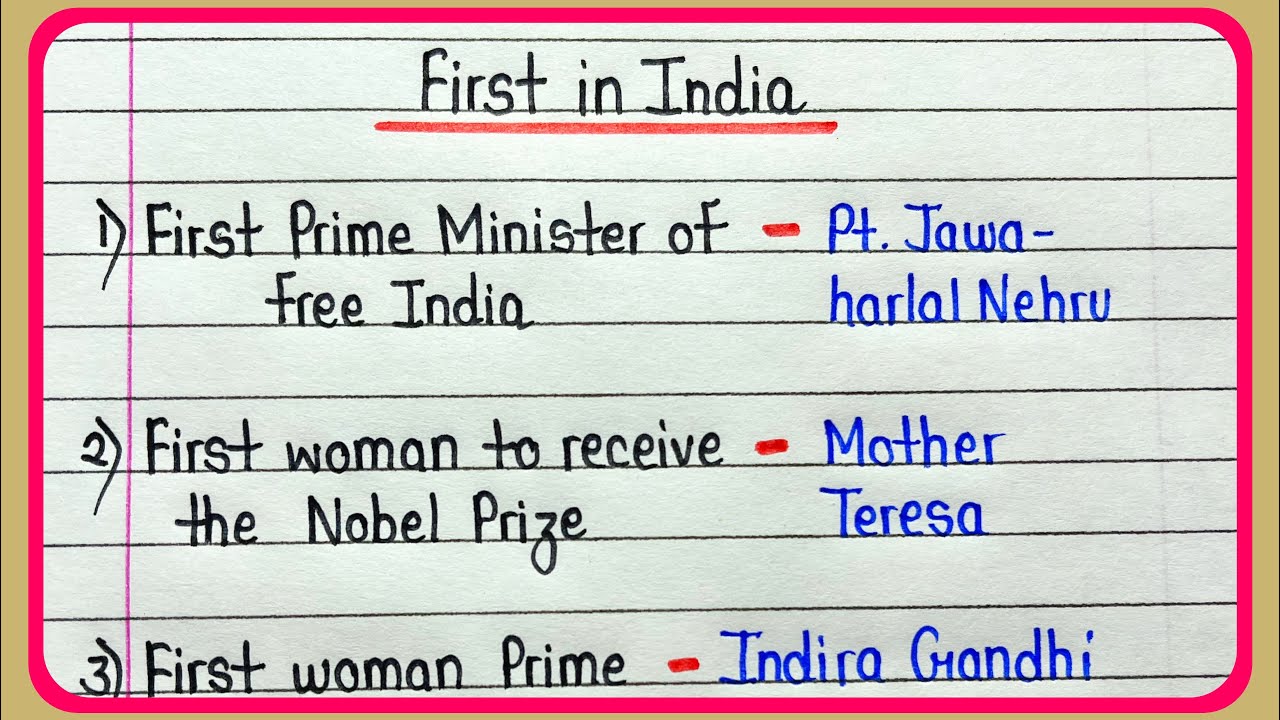 First in India
1) First Prime Minister of - Pt. Jawa-
free India harlal Nehru
2) First woman to receive - Mother
the Nobel Prize Teresa
3) First woman Prime - Indira Gandhi